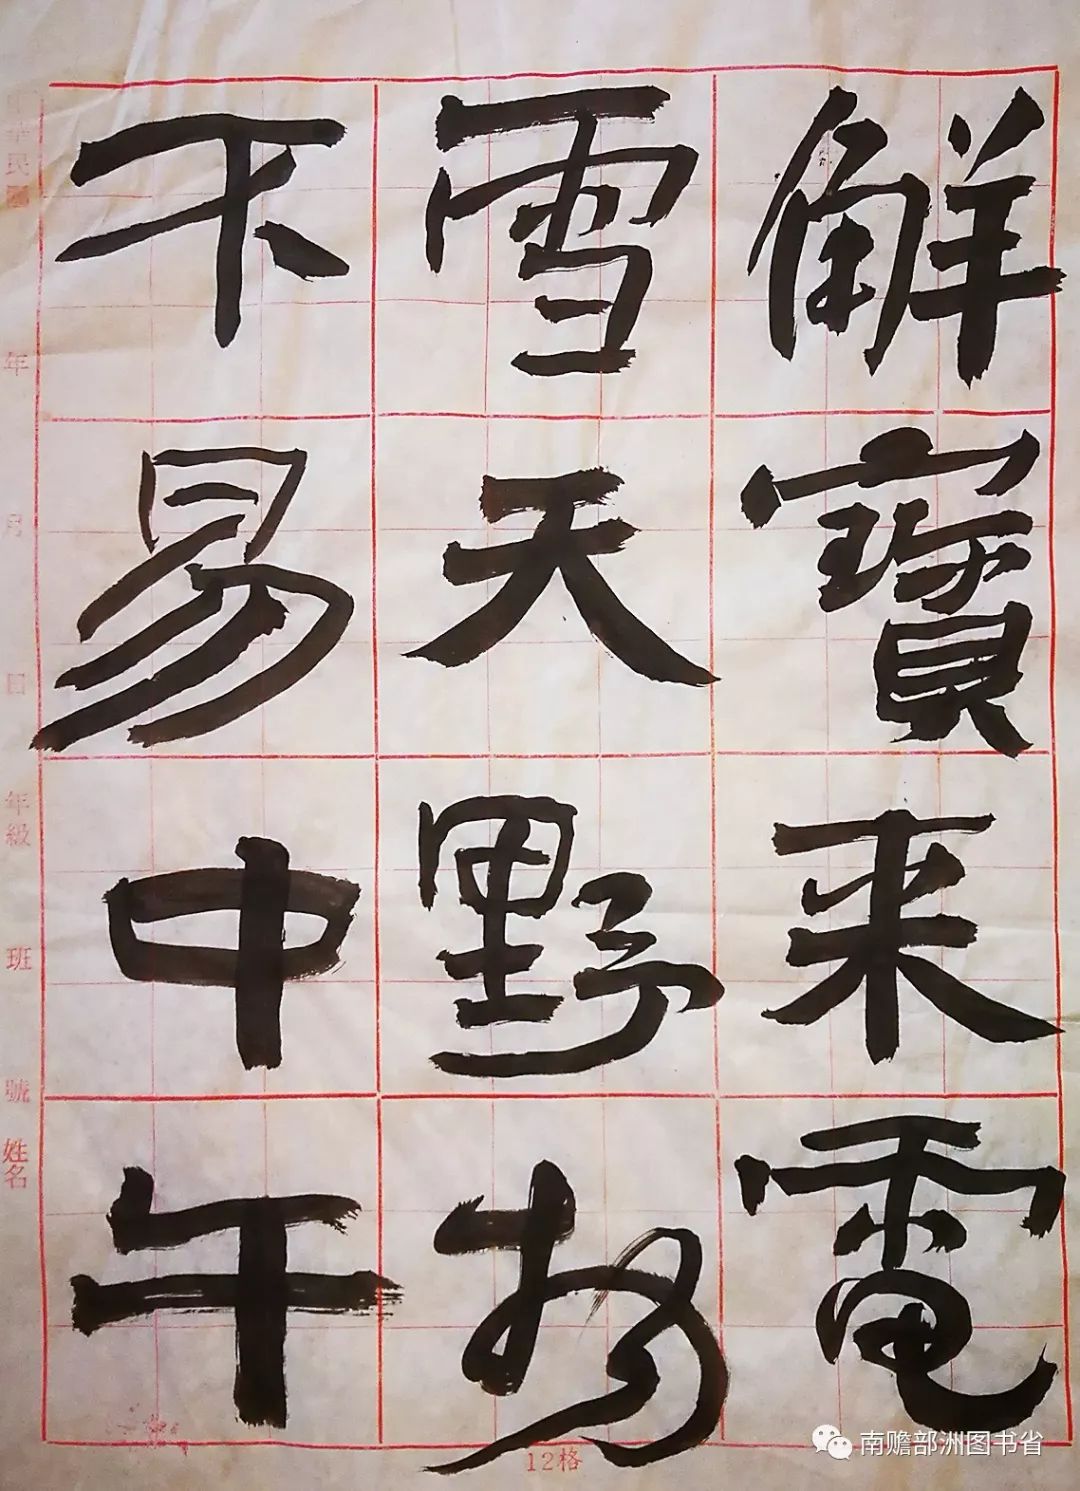 觧寶来電
雪天野物
不易中午
中華民國 年 月 日 年級 班 號 姓名
12格
南赡部洲图书省